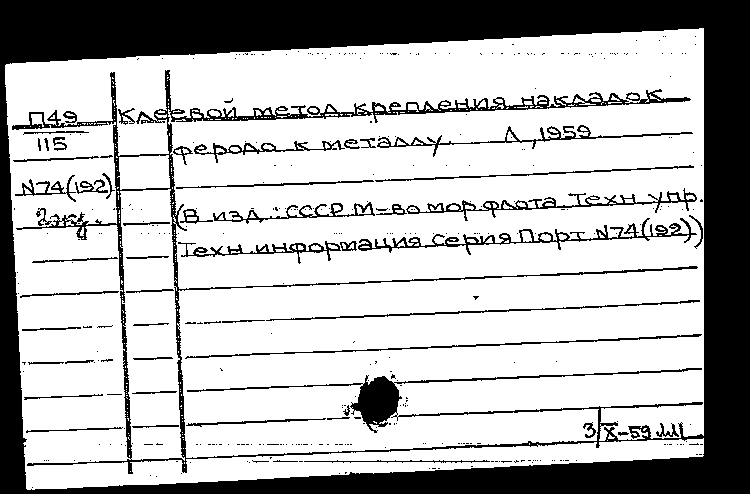 П49 Клеевой метод крепления накладок
115 феродо к металлу. Л, 1959
N74(192)
2экз. (В изд.: СССР М-во мор. флота. Техн. упр.
Техн. информация. Серия Порт N74(192))
3/X-59